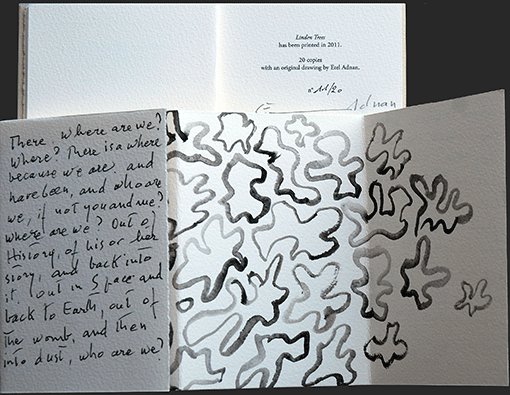 Linden Trees
has been printed in 2011.
20 copies
with an original drawing by Etel Adnan.
n° 11/20
E Adnan
There where are we?
Where? There is a where
because we are and
have been, and who are
we, if not you and me?
where are we? Out of
History, of his or her
story, and back into
it, out in Space and
back to Earth, out of
the womb, and then
into dust, who are we?